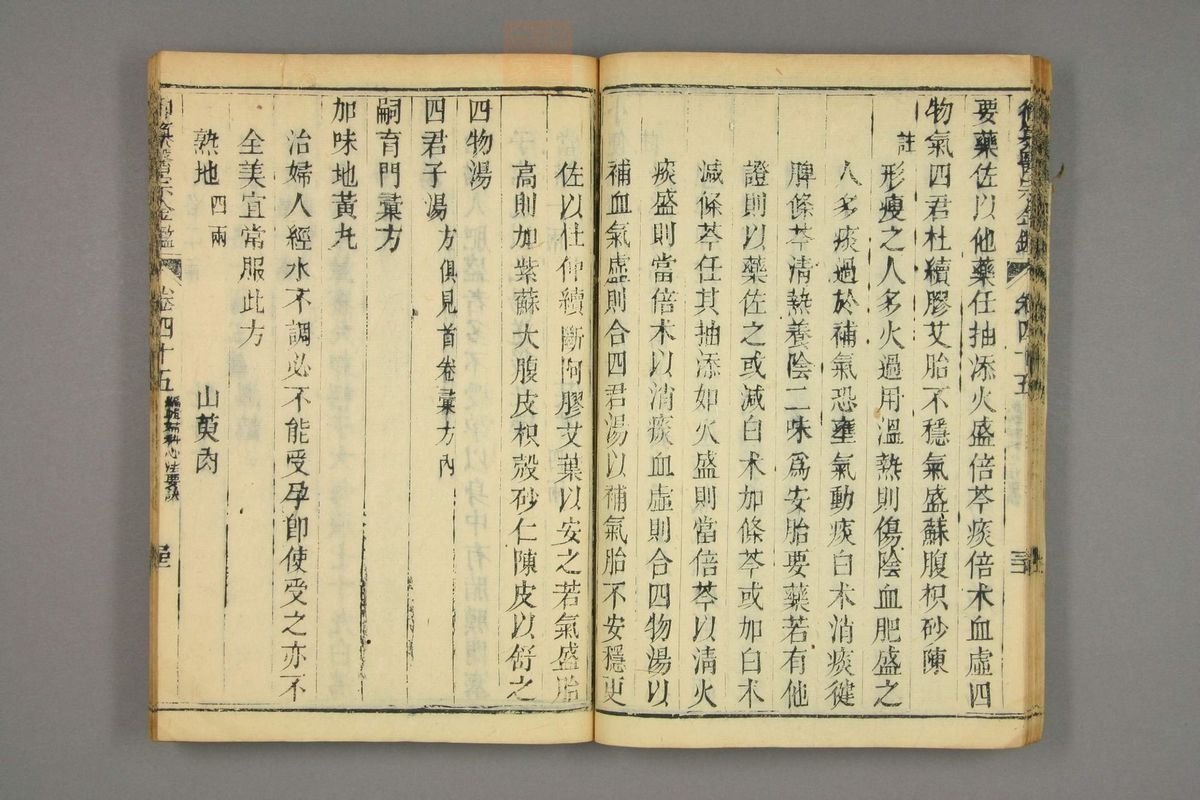 御纂醫宗金鑑 卷四十五
要藥佐以他藥任抽添火盛倍芩痰倍朮血虛四
物氣四君杜續膠艾胎不穩氣盛蘇腹枳砂陳
註
形瘦之人多火過用溫熱則傷陰血肥盛之
人多痰過於補氣恐壅氣動痰白朮消痰健
脾條芩清熱養陰二味為安胎要藥若有他
證則以藥佐之或減白朮加條芩或加白朮
減條芩任其抽添如火盛則當倍芩以清火
痰盛則當倍朮以消痰血虛則合四物湯以
補血氣虛則合四君湯以補氣胎不安穩更
佐以杜仲續斷阿膠艾葉以安之若氣盛胎
高則加紫蘇大腹皮枳殼砂仁陳皮以舒之
四物湯
四君子湯 方俱見首卷彙方內
嗣育門彙方
加味地黃丸
治婦人經水不調必不能受孕即使受之亦不
全美宜常服此方
熟地 四兩 山萸肉
御纂醫宗金鑑 卷四十五 編輯婦科心法要訣